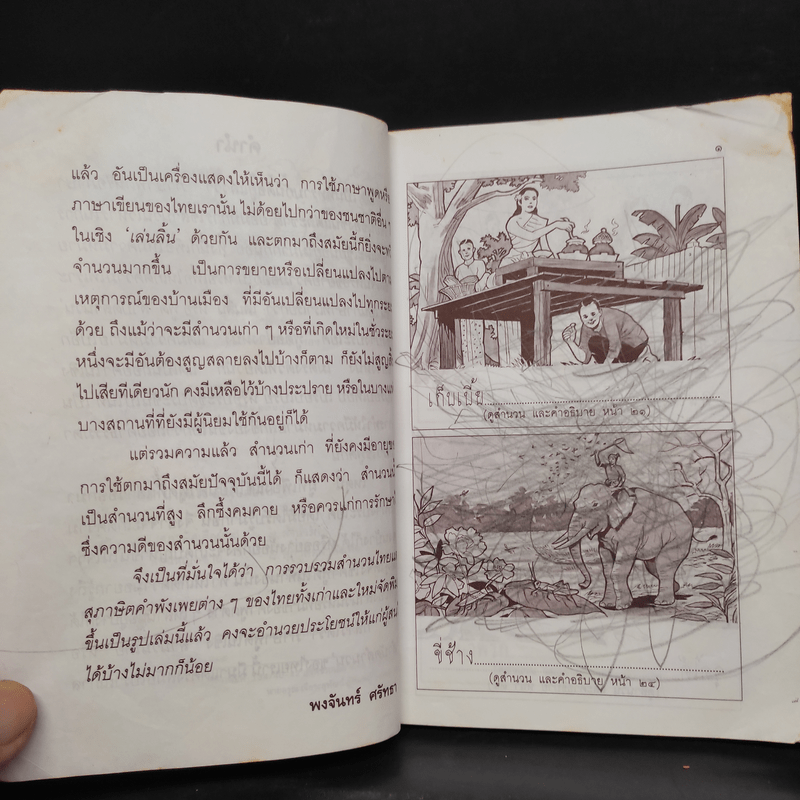 แล้ว อันเป็นเครื่องแสดงให้เห็นว่า การใช้ภาษาพูดหรือ
ภาษาเขียนของไทยเรานั้น ไม่ด้อยไปกว่าของชนชาติอื่น ๆ
ในเชิง ‘เล่นลิ้น’ ด้วยกัน และตกมาถึงสมัยนี้ก็ยิ่งจะ
จำนวนมากขึ้น เป็นการขยายหรือเปลี่ยนแปลงไปตาม
เหตุการณ์ของบ้านเมือง ที่มีอันเปลี่ยนแปลงไปทุกระยะ
ด้วย ถึงแม้ว่าจะมีสำนวนเก่า ๆ หรือที่เกิดใหม่ในชั่วระยะ
หนึ่งจะมีอันต้องสูญสลายลงไปบ้างก็ตาม ก็ยังไม่สูญ
ไปเสียทีเดียวนัก คงมีเหลือไว้บ้างประปราย หรือในบาง
บางสถานที่ที่ยังมีผู้นิยมใช้กันอยู่ก็ได้
แต่รวมความแล้ว สำนวนเก่า ที่ยังคงมีอายุ
การใช้ตกมาถึงสมัยปัจจุบันนี้ได้ ก็แสดงว่า สำนวน
เป็นสำนวนที่สูง ลึกซึ้งคมคาย หรือควรแก่การรักษา
ซึ่งความดีของสำนวนนั้นด้วย
จึงเป็นที่มั่นใจได้ว่า การรวบรวมสำนวนไทย
สุภาษิตคำพังเพยต่าง ๆ ของไทยทั้งเก่าและใหม่จัดพิมพ์
ขึ้นเป็นรูปเล่มนี้แล้ว คงจะอำนวยประโยชน์ให้แก่ผู้
ได้บ้างไม่มากก็น้อย
พงจันทร์ ศรัทธา
๑
เก็บเบี้ย
(ดูสำนวน และคำอธิบาย หน้า ๒๑)
ขี่ช้าง
(ดูสำนวน และคำอธิบาย หน้า ๒๔)